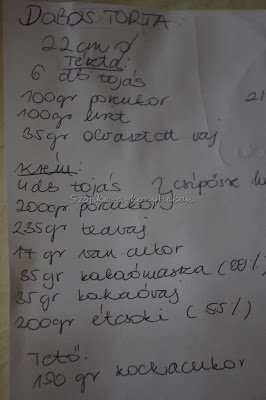 DOBOS TORTA
22 cm ∅
Tészta:
6 db tojás
100gr porcukor
100gr liszt
35gr olvasztott vaj
Krém:
4 db tojás
200gr porcukor
235gr teavaj
17 gr van. cukor
35 gr kakaómassza (
35 gr kakaóvaj
200gr étcsoki (55%)
Tető:
150 gr kockacukor
Szépítka a konyhában